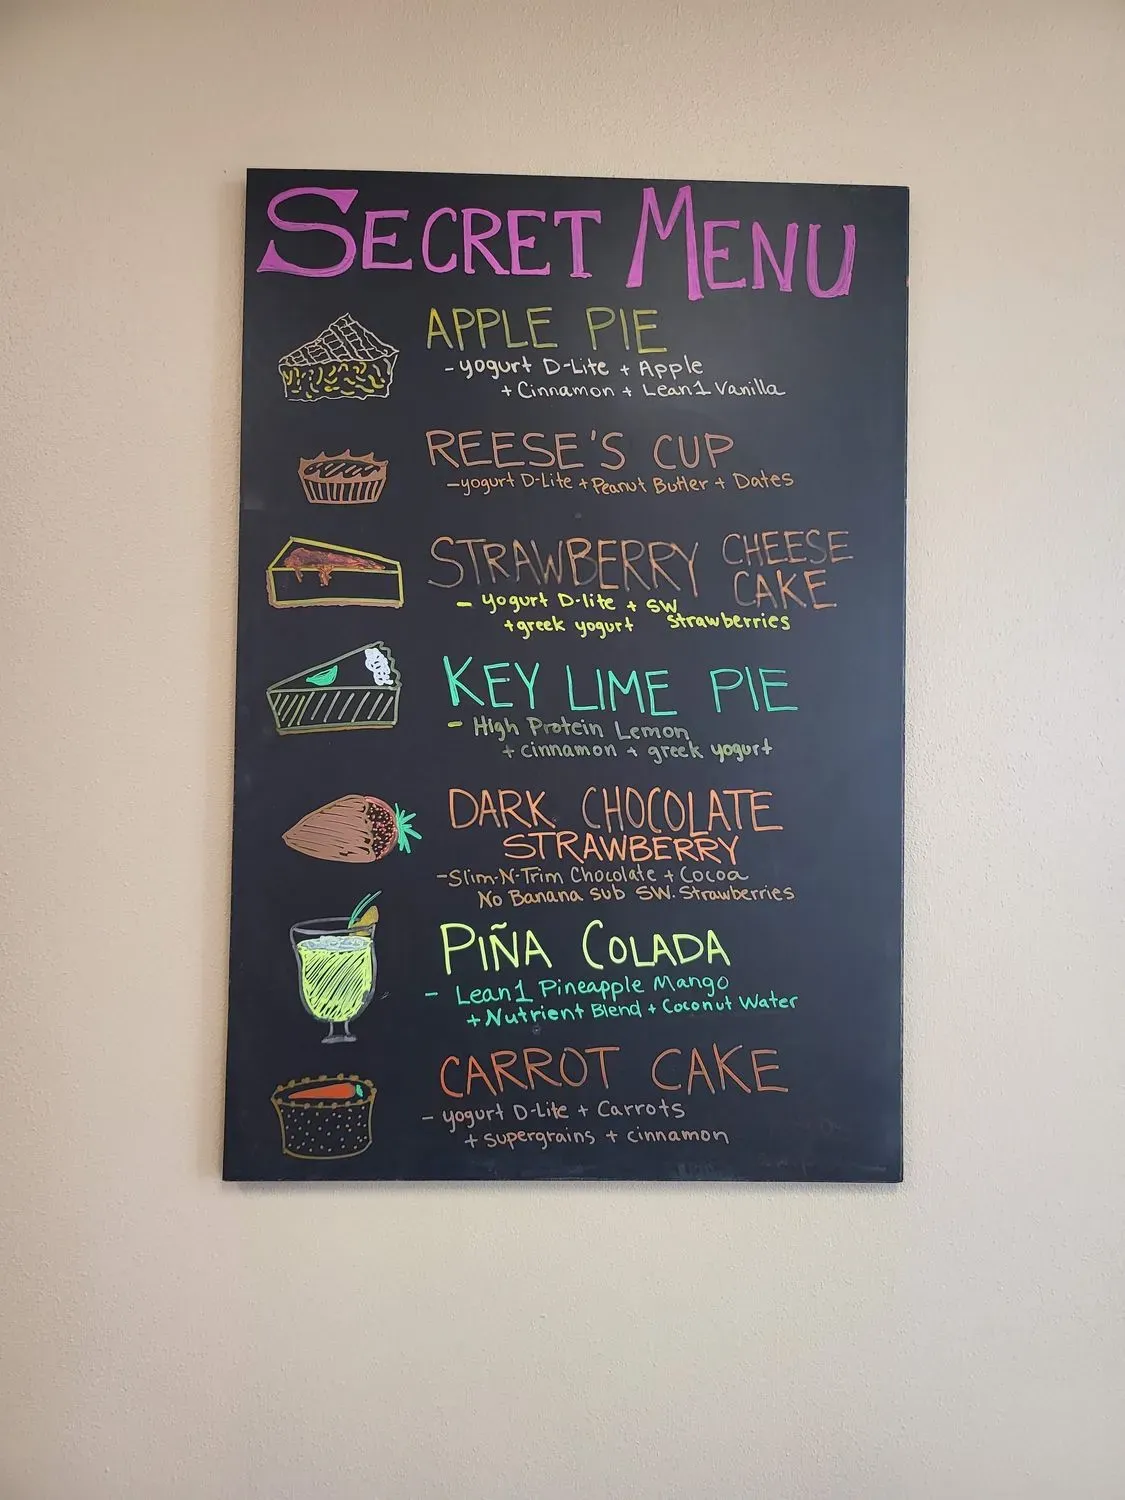 SECRET MENU
APPLE PIE
- yogurt D-Lite + Apple
+ Cinnamon + Lean1 Vanilla
REESE'S CUP
- yogurt D-Lite + Peanut Butter + Dates
STRAWBERRY CHEESE
CAKE
- yogurt D-lite + SW
+ greek yogurt Strawberries
KEY LIME PIE
- High Protein Lemon
+ cinnamon + greek yogurt
DARK CHOCOLATE
STRAWBERRY
- Slim-N-Trim Chocolate + Cocoa
No Banana sub SW. Strawberries
PIÑA COLADA
- Lean1 Pineapple Mango
+ Nutrient Blend + Coconut Water
CARROT CAKE
- yogurt D-Lite + Carrots
+ supergrains + cinnamon